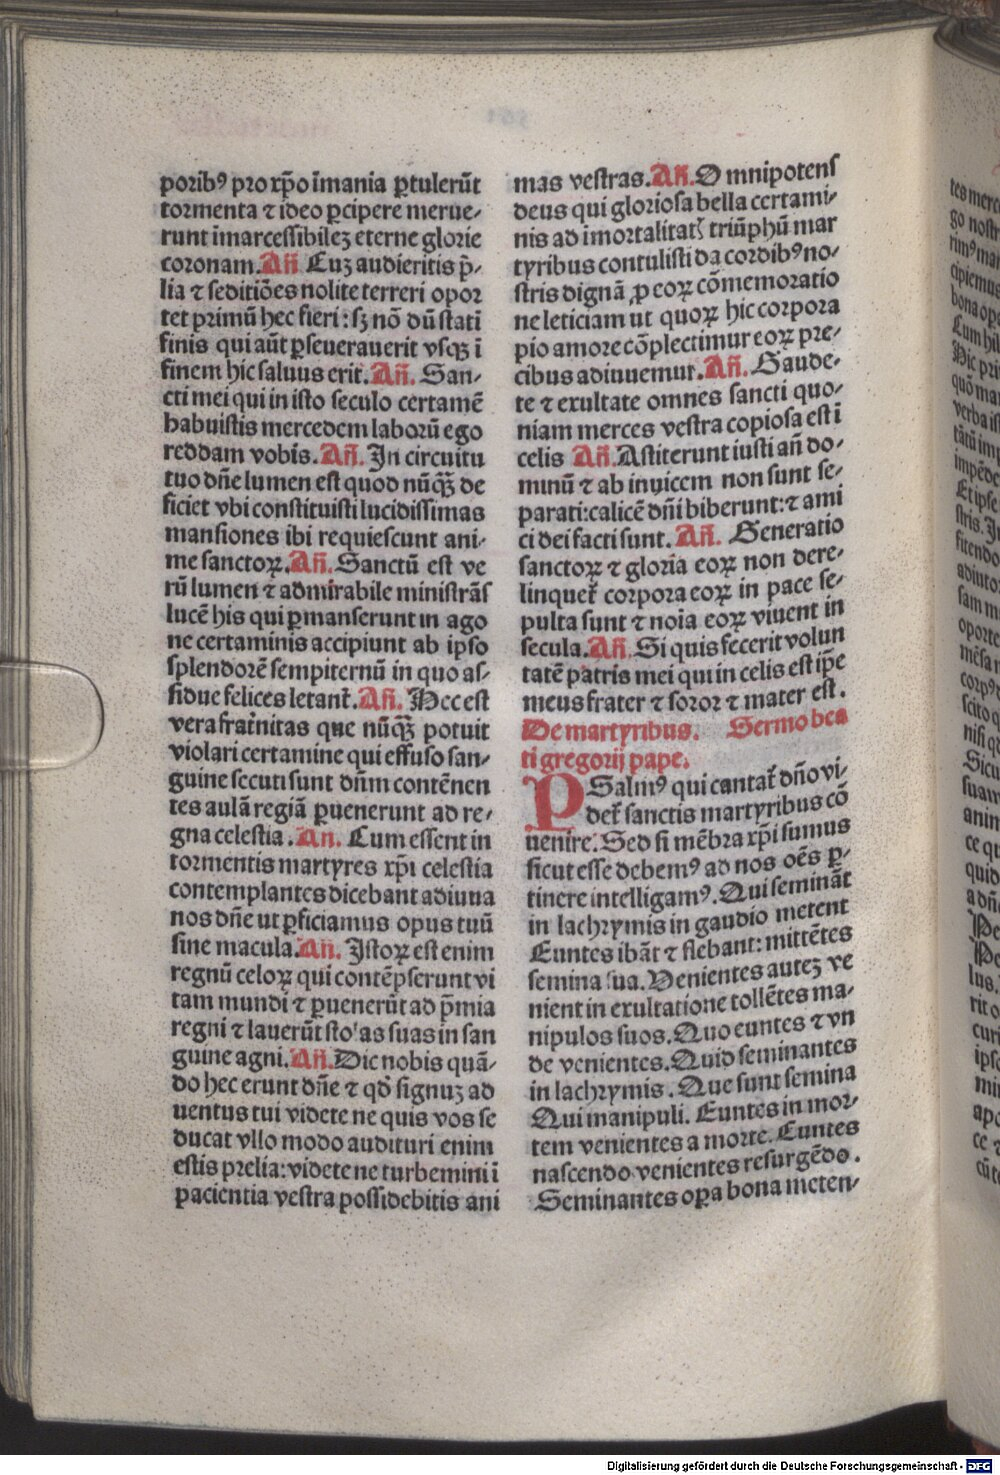 poribꝰ pro xp̄o īmania ꝑtulerūt
tormenta ⁊ ideo ꝑcipere merue⸗
runt īmarcessibileꝫ eterne glorie
coronam. An̄ Cuꝫ audieritis p̄⸗
lia ⁊ seditiōes nolite terreri opor
tet primū hec fieri : sꝫ nō dū statī
finis qui aūt ꝑseuerauerit vsqꝫ ī
finem hic saluus erit. An̄. San⸗
cti mei qui in isto seculo certamē
habuistis mercedem laborū ego
reddam vobis. An̄. In circuitu
tuo dn̄e lumen est quod nūqꝫ̄ de
ficiet vbi constituisti lucidissimas
mansiones ibi requiescunt ani⸗
me sanctoꝝ. An̄. Sanctū est ve
rū lumen ⁊ admirabile ministrās
lucē his qui ꝑmanserunt in ago
ne certaminis accipiunt ab ipso
splendorē sempiternū in quo as⸗
sidue felices letant᷑. An̄. Hec est
vera frat᷑nitas que nūqꝫ̄ potuit
violari certamine qui effuso san⸗
guine secuti sunt dn̄m contēnen
tes aulā regiā ꝑuenerunt ad re⸗
gna celestia . An. Cum essent in
tormentis martyres xp̄i celestia
contemplantes dicebant adiuua
nos dn̄e ut ꝑficiamus opus tuū
sine macula. An. Istoꝝ est enim
regnū celoꝝ qui contēpserunt vi
tam mundi ⁊ ꝑuenerūt ad p̄mia
regni ⁊ lauerūt sto'as suas in san
guine agni. An̄. Dic nobis quā⸗
do hec erunt dn̄e ⁊ qd̓ signuꝫ ad
uentus tui videte ne quis vos se
ducat vllo modo audituri enim
estis prelia: videte ne turbemini ī
pacientia vestra possidebitis ani
mas vestras. An̄. O mnipotens
deus qui gloriosa bella certami⸗
nis ad imortalitatꝭ triūphū mar
tyribus contulisti da cordibꝰ no⸗
stris dignā ꝓ eoꝝ cōmemoratio
ne leticiam ut quoꝝ hic corpora
pio amore cōplectimur eoꝝ pre⸗
cibus adiuuemur. An̄. Gaude⸗
te ⁊ exultate omnes sancti quo⸗
niam merces vestra copiosa est ī
celis An̄. Astiterunt iusti an̄ do⸗
minū ⁊ ab inuicem non sunt se⸗
parati: calicē dn̄i biberunt: ⁊ ami
ci dei facti sunt. An̄. Generatio
sanctoꝝ ⁊ gloria eoꝝ non dere⸗
linquet᷑ corpora eoꝝ in pace se⸗
pulta sunt ⁊ noīa eoꝝ viuent in
secula. An̄. Si quis fecerit volun
tatē patris mei qui in celis est ip̄e
meus frater ⁊ soror ⁊ mater est .
De martyribus. Sermo bea
ti gregorij pape.
PSalmꝰ qui cantat᷑ dn̄o vi⸗
det᷑ sanctis martyribus cō
uenire. Sed si mēbra xp̄i sumus
sicut esse debemꝰ ad nos oēs ꝑ⸗
tinere intelligamꝰ. Qui semināt
in lachrymis in gaudio metent
Euntes ibāt ⁊ flebant: mittētes
semina sua. Venientes auteꝫ ve
nient in exultatione tollētes ma⸗
nipulos suos. Quo euntes ⁊ vn
de venientes. Quid seminantes
in lachrymis . Que sunt semina
Qui manipuli. Euntes in mor⸗
tem venientes a morte. Euntes
nascendo venientes resurgēdo .
Seminantes oꝑa bona meten⸗
Digitalisierung gefördert durch die Deutsche Forschungsgemeinschaft - DFG